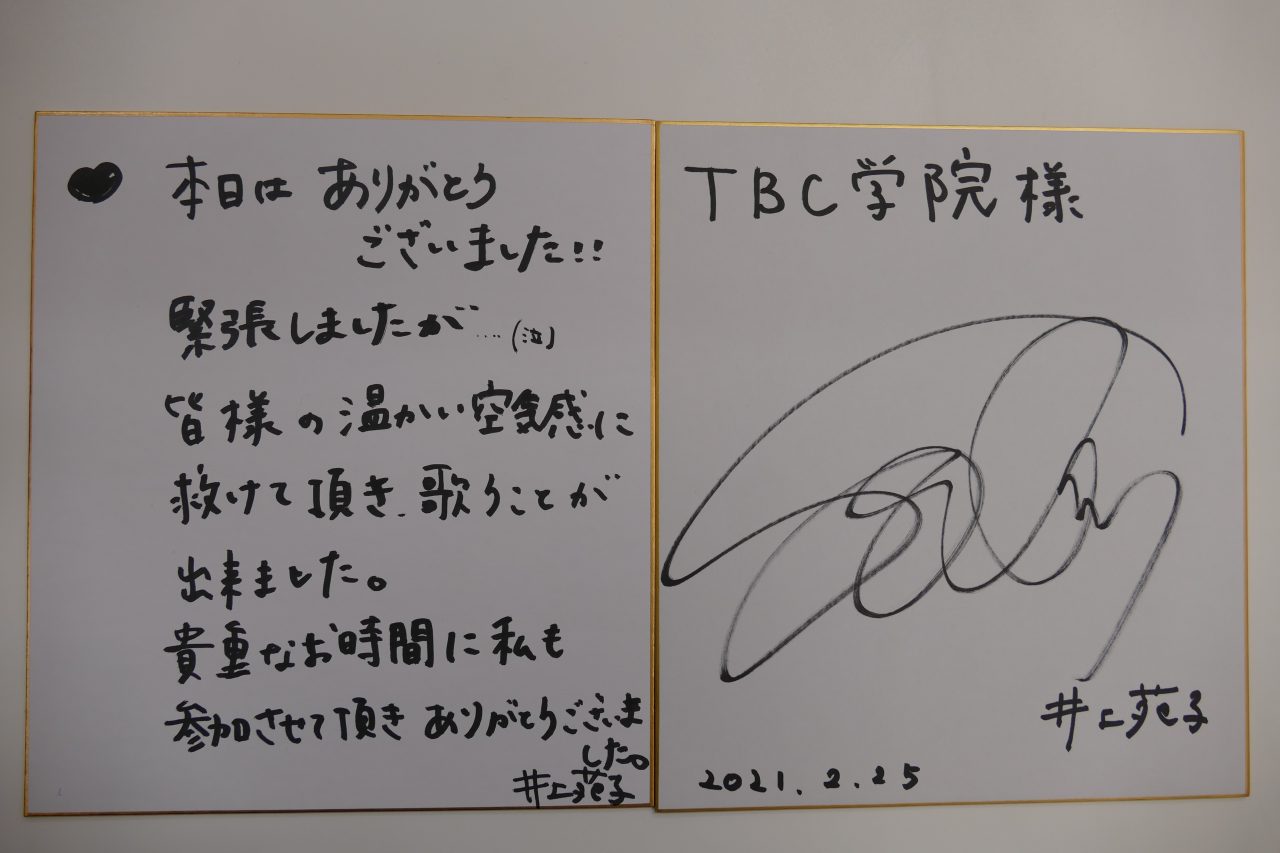 本日は ありがとう
ございました!!
緊張しましたが……(泣)
皆様の温かい空気感に
救けて頂き、歌うことが
出来ました。
貴重なお時間に私も
参加させて頂き ありがとうございま
した。
井上苑子
TBC学院様
井上苑子
2021.2.25